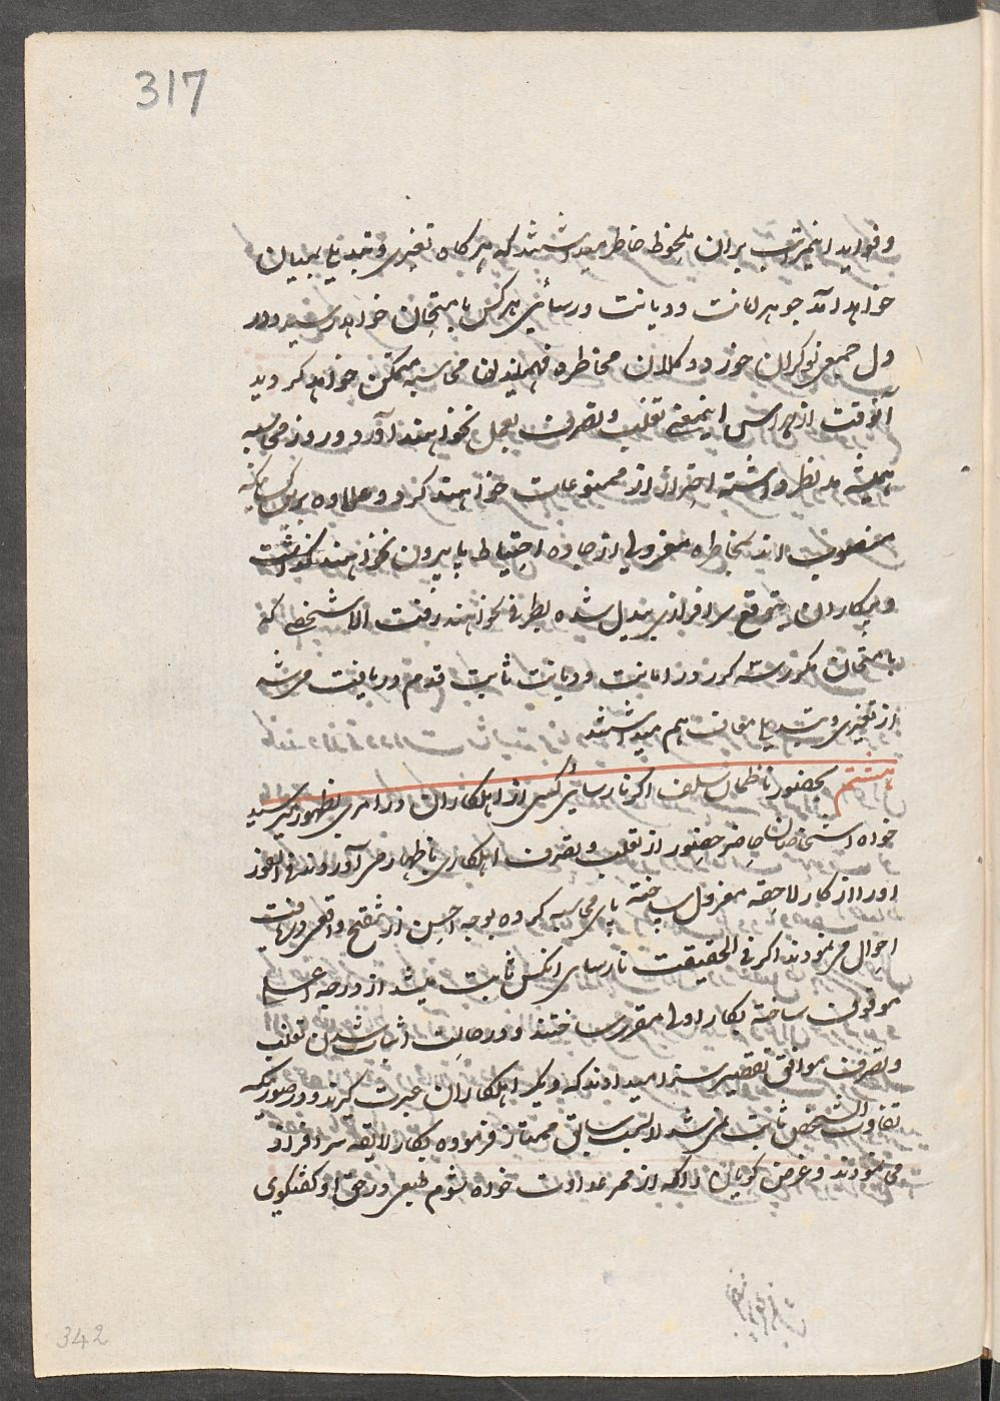 317
و فواید اینمراتب بران ملحوظ خاطر میداشتند که هرگاه تغیری و تبدیلی بمیان
خواهد آمد جوهر امانت و دیانت و رسائی هر کس بامتحان خواهد رسید و در
دل جمیع نوکران خورد و کلان مخاطره فهمیدن محاسبه متمکن خواهد گردید
آنوقت از هراس اینمعنی تغلب و تصرف بعمل نخواهند آورد و روز محاسبه
همیشه مد نظر داشته احتراز از ممنوعات خواهند کرد و علاوه برین کسانیکه
منصوب اند بمخاطره معزولی از جاده احتیاط پا بیرون نخواهند گذاشت
و بیکاران بتوقع سرافرازی بیدل شده بطرفی نخواهند رفت الا شخصی که
بامتحان مکرر در امانت و دیانت ثابت قدم دریافت میشد
از تغیری و تبدیلی معاف هم میداشتند
هشتم بحضور ناظمان سلف اگر نارسائی کسی از اهلکاران در امری بظهور میرسید
خواه اشخاصان حاضر حضور از تغلب و تصرف اهلکاری باظهار می آوردند فی الفور
او را از کار لاحقه معزول ساخته پای محاسبه کرده بوجه احسن از تنقیح واقعی دریافت
احوال میفرمودند اگر فی الحقیقت نارسائی آنکس ثابت میشد از درجه اعلی
موقوف ساخته بکار اولی مقرر ساختند و در حالت اثبات شدن تغلب
و تصرف موافق تقصیر سزا میدادند که دیگر اهلکاران عبرت گیرند و در صورتیکه
تفاوت الشخص ثابت نمی شد از نسبت سابق ممتاز فرموده بکار لایقه سرافراز
می نمودند و غرض گویان را که از ممر عداوت خواه شوم طبعی در حق او گفتگوی
342